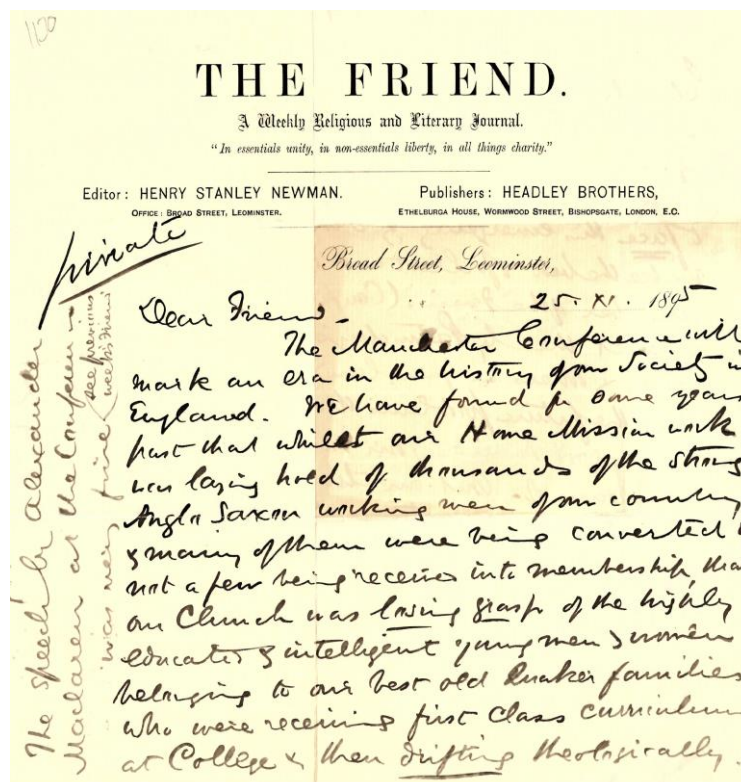 1120
THE FRIEND.
A Weekly Religious and Literary Journal.
"In essentials unity, in non-essentials liberty, in all things charity."
Editor: HENRY STANLEY NEWMAN.
OFFICE: BROAD STREET, LEOMINSTER.
Publishers: HEADLEY BROTHERS,
ETHELBURGA HOUSE, WORMWOOD STREET, BISHOPSGATE, LONDON, E.C.
private
Broad Street, Leominster,
25. XI. 1895
Dear Friend -
The Manchester Conference will
mark an era in the history of our Society in
England. We have found for some years
past that whilst our Home Mission work
was laying hold of thousands of the strong
Anglo Saxon working men of our country
& many of them were being converted &
not a few being received into membership, that
our Church was losing grasp of the highly
educated & intelligent young men & women
belonging to our best old Quaker families
who were receiving first class curriculum
at College & then drifting theologically.
The speech by Alexander
Maclaren at the Conference
was very fine
see previous
week's Friend